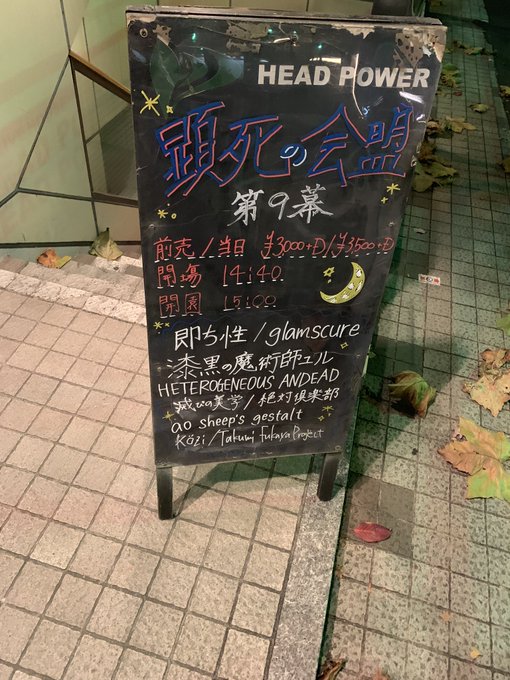 HEAD POWER
顕死の会盟
第9幕
前売/当日 ¥3000+D/¥3500+D
開場 14:40
開園 15:00
即ち性/glamscure
漆黒の魔術師ユル
HETEROGENEOUS ANDEAD
滅びの美学/絶対倶楽部
ao sheep's gestalt
Közi/Takumi fukaya Project